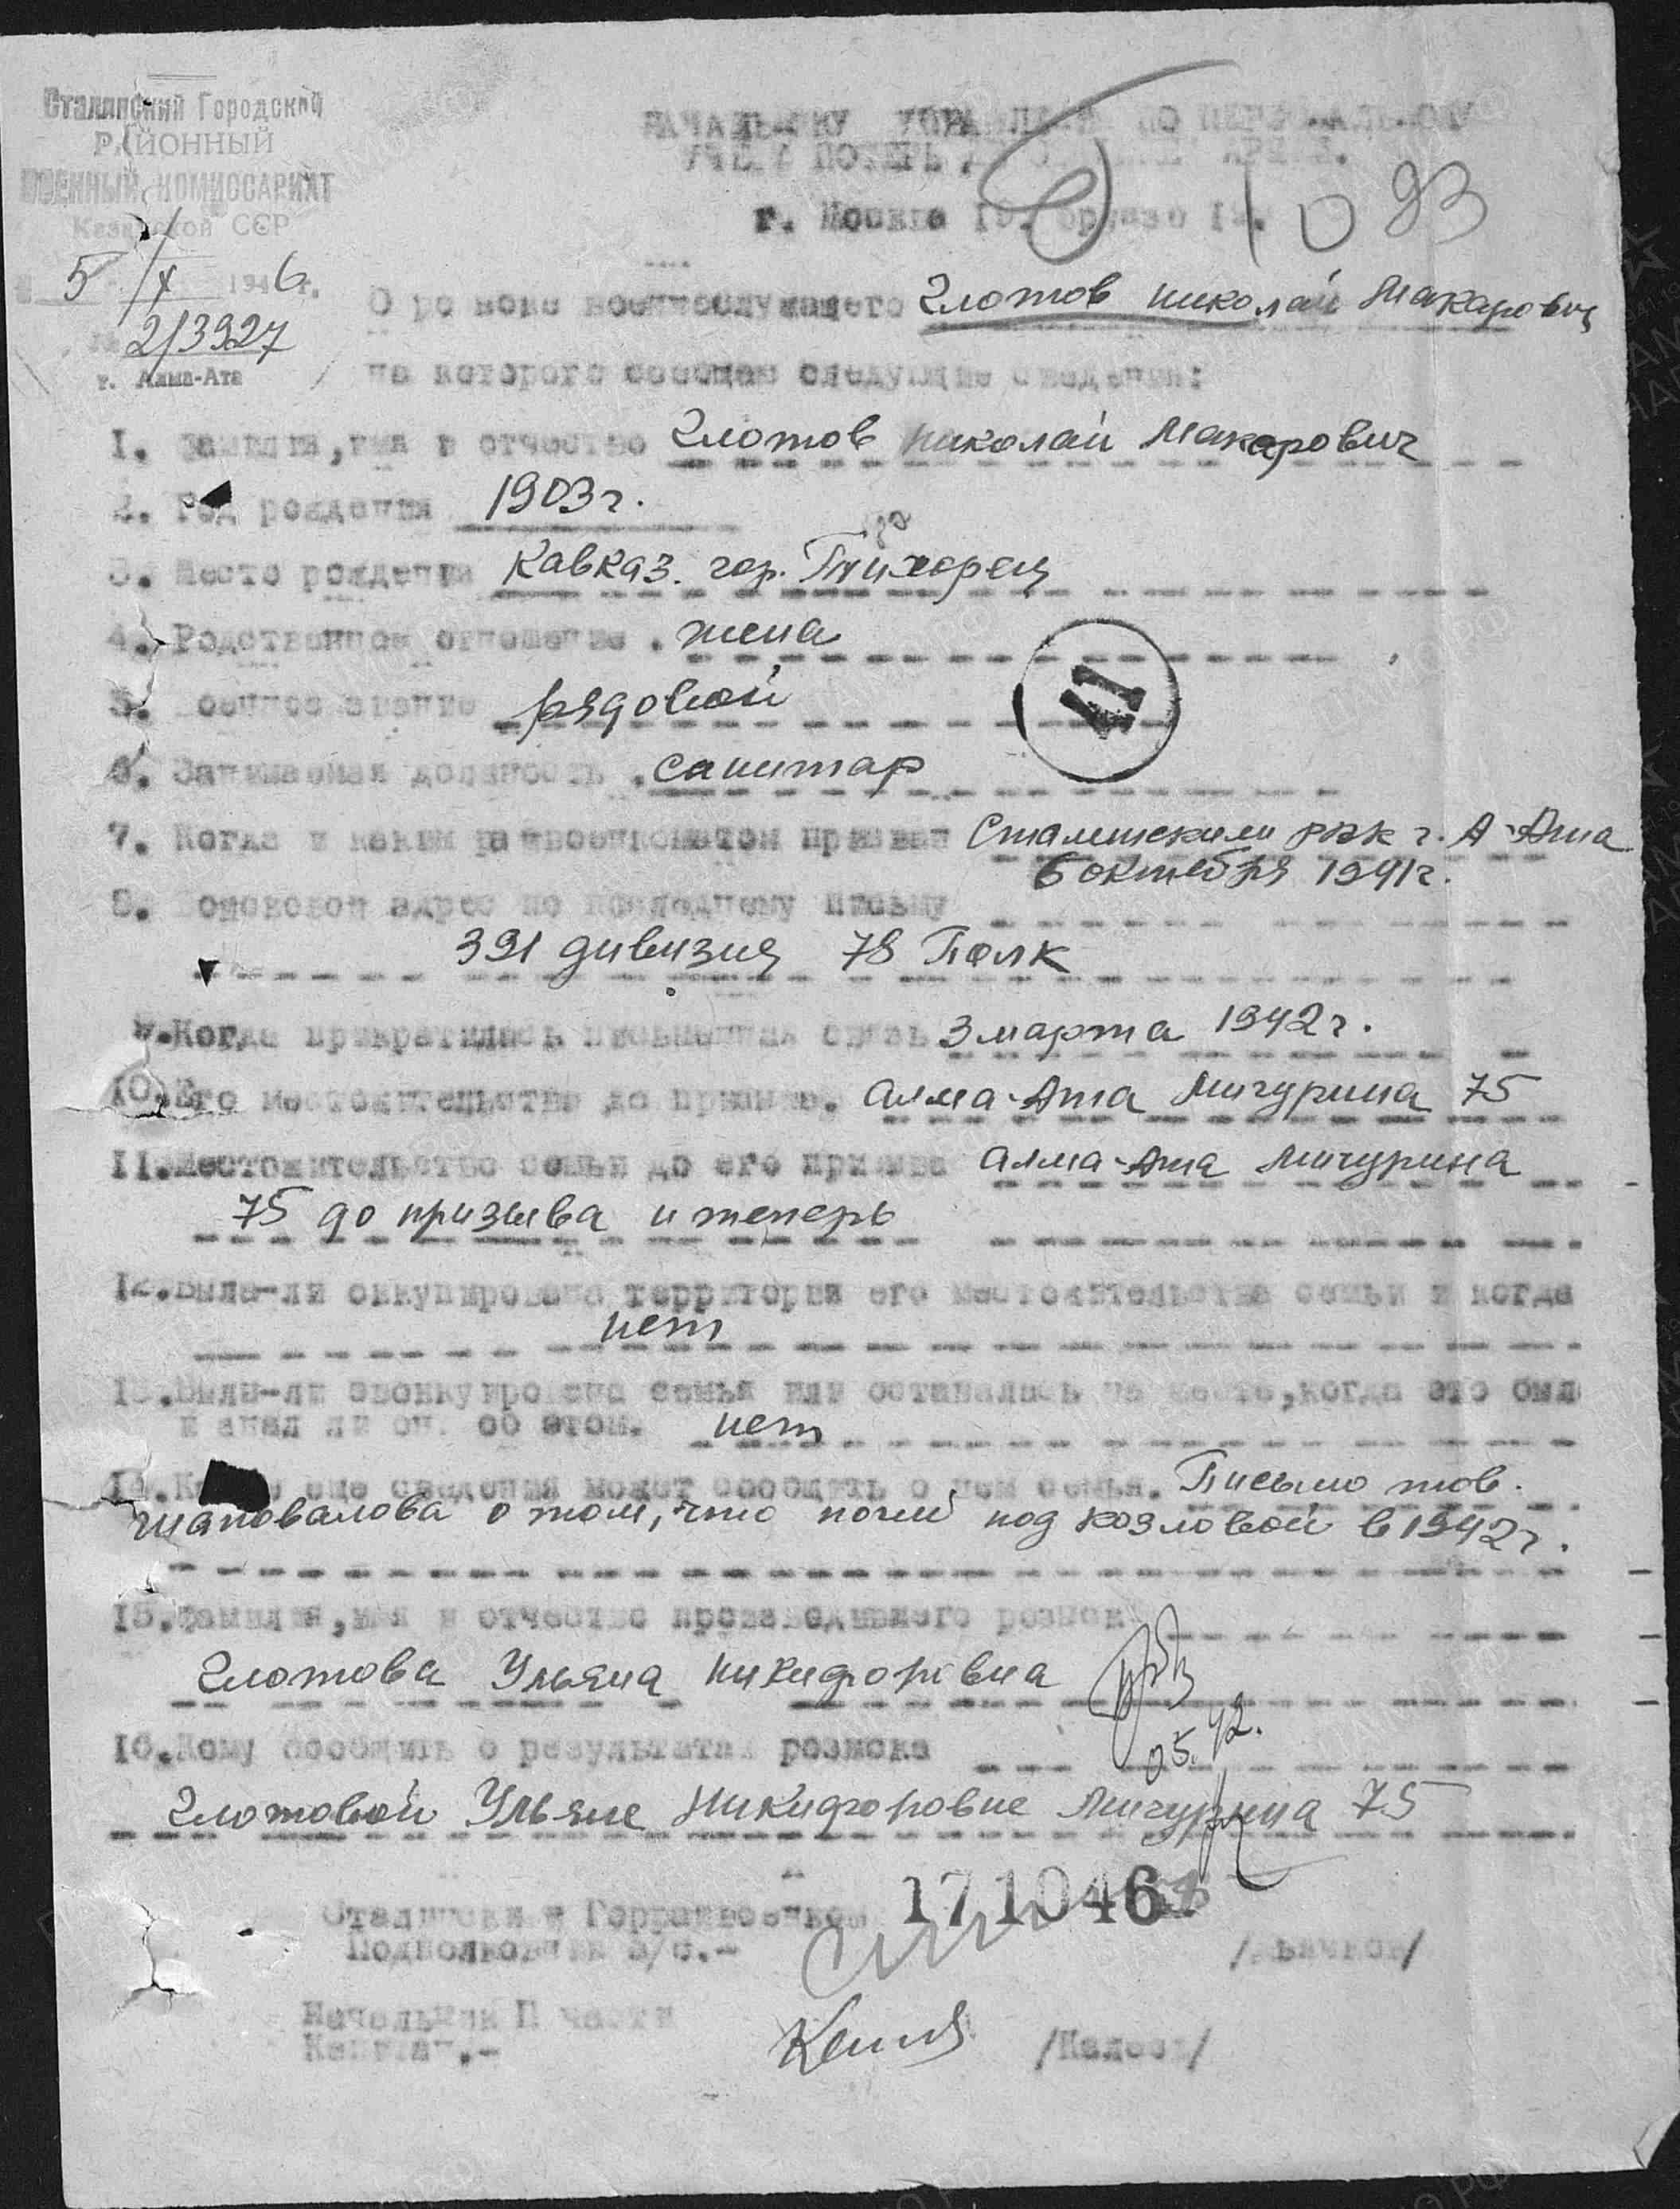 Сталинский Городской
РАЙОННЫЙ
ВОЕННЫЙ КОМИССАРИАТ
Казахской ССР
5/X 1946 г.
2/3927
г. Алма-Ата
НАЧАЛЬНИКУ УПРАВЛЕНИЯ ПО ПЕРСОНАЛЬНОМУ
УЧЕТУ ПОТЕРЬ
г. Москва
1093
О розыске военнослужащего Глотов Николай Макарович
на которого сообщаю следующие сведения:
1. Фамилия, имя и отчество Глотов Николай Макарович
2. Год рождения 1903 г.
3. Место рождения Кавказ. гор. Тихорец
4. Родственное отношение. жена
5. Военное звание рядовой
II
6. Занимаемая должность. санитар
7. Когда и каким райвоенкоматом призван Сталинским рвк г. А-Ата
6 октября 1941 г.
8. адрес по последнему письму
391 дивизия 78 Полк
9. Когда прекратилась письменная связь 3 марта 1942 г.
10. Его местожительство до призыва. Алма-Ата Мичурина 75
11. Местожительство семьи до его призыва Алма-Ата Мичурина
75 до призыва и теперь
12. Была-ли оккупирована территория его местожительства семьи и когда
нет
13. Была-ли эвакуирована семья или оставалась на месте, когда это был
и знал ли он об этом. нет
14. Какие еще сведения может сообщить о нем семья. Письмо тов.
Шаповалова о том, что погиб под Козловой в 1942 г.
15. Фамилия, имя и отчество производившего розыск
Глотова Ульяна Никифоровна
05.42.
16. Кому сообщить о результатах розыска
Глотовой Ульяне Никифоровне Мичурина 75
171046
Сталинский Горрайвоенком
Подполковник а/с.-
Начальник II части
Капитан.-